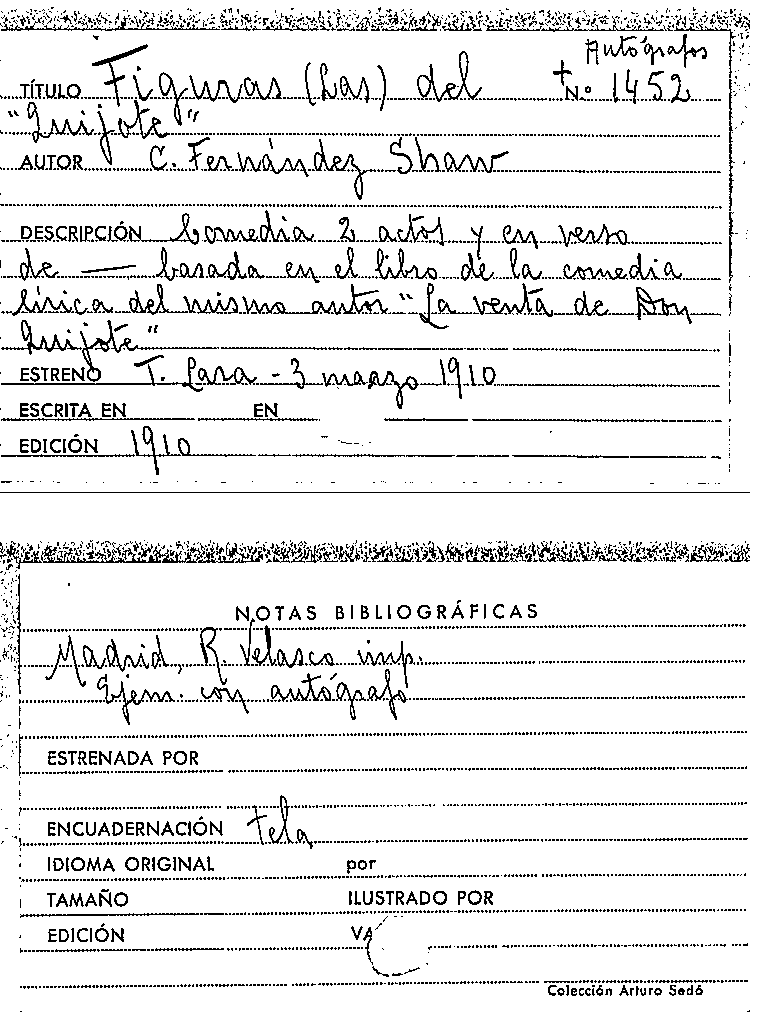 Autógrafos
TÍTULO Figuras (Las) del + N.º 1452
"Quijote"
AUTOR C. Fernández Shaw
DESCRIPCIÓN Comedia 2 actos y en verso
de — basada en el libro de la comedia
lírica del mismo autor "La venta de Don
Quijote"
ESTRENO T. Lara - 3 marzo 1910
ESCRITA EN EN
EDICIÓN 1910
NOTAS BIBLIOGRÁFICAS
Madrid, R. Velasco imp.
Ejem. con autógrafo
ESTRENADA POR
ENCUADERNACIÓN tela
IDIOMA ORIGINAL por
TAMAÑO ILUSTRADO POR
EDICIÓN VA
Colección Arturo Sedó